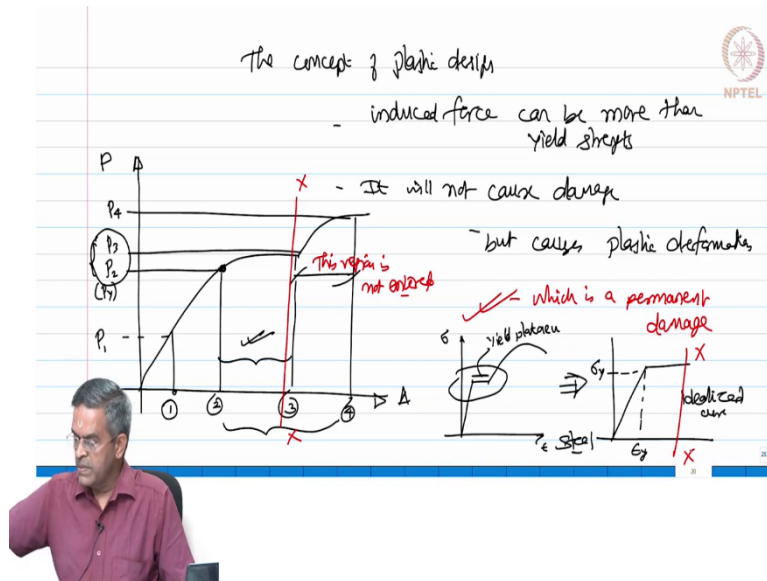 The concept of plastic design
NPTEL
- induced force can be more than
yield strength
- It will not cause damage
- but causes plastic deformation
- which is a permanent
damage
P
P4
P3
P2
(Py)
P1
X
This region is
not entered
1
2
3
4
Δ
X
σ
yield plateau
ε
steel
⇒
σy
εy
X
idealized
curve
X
20
20